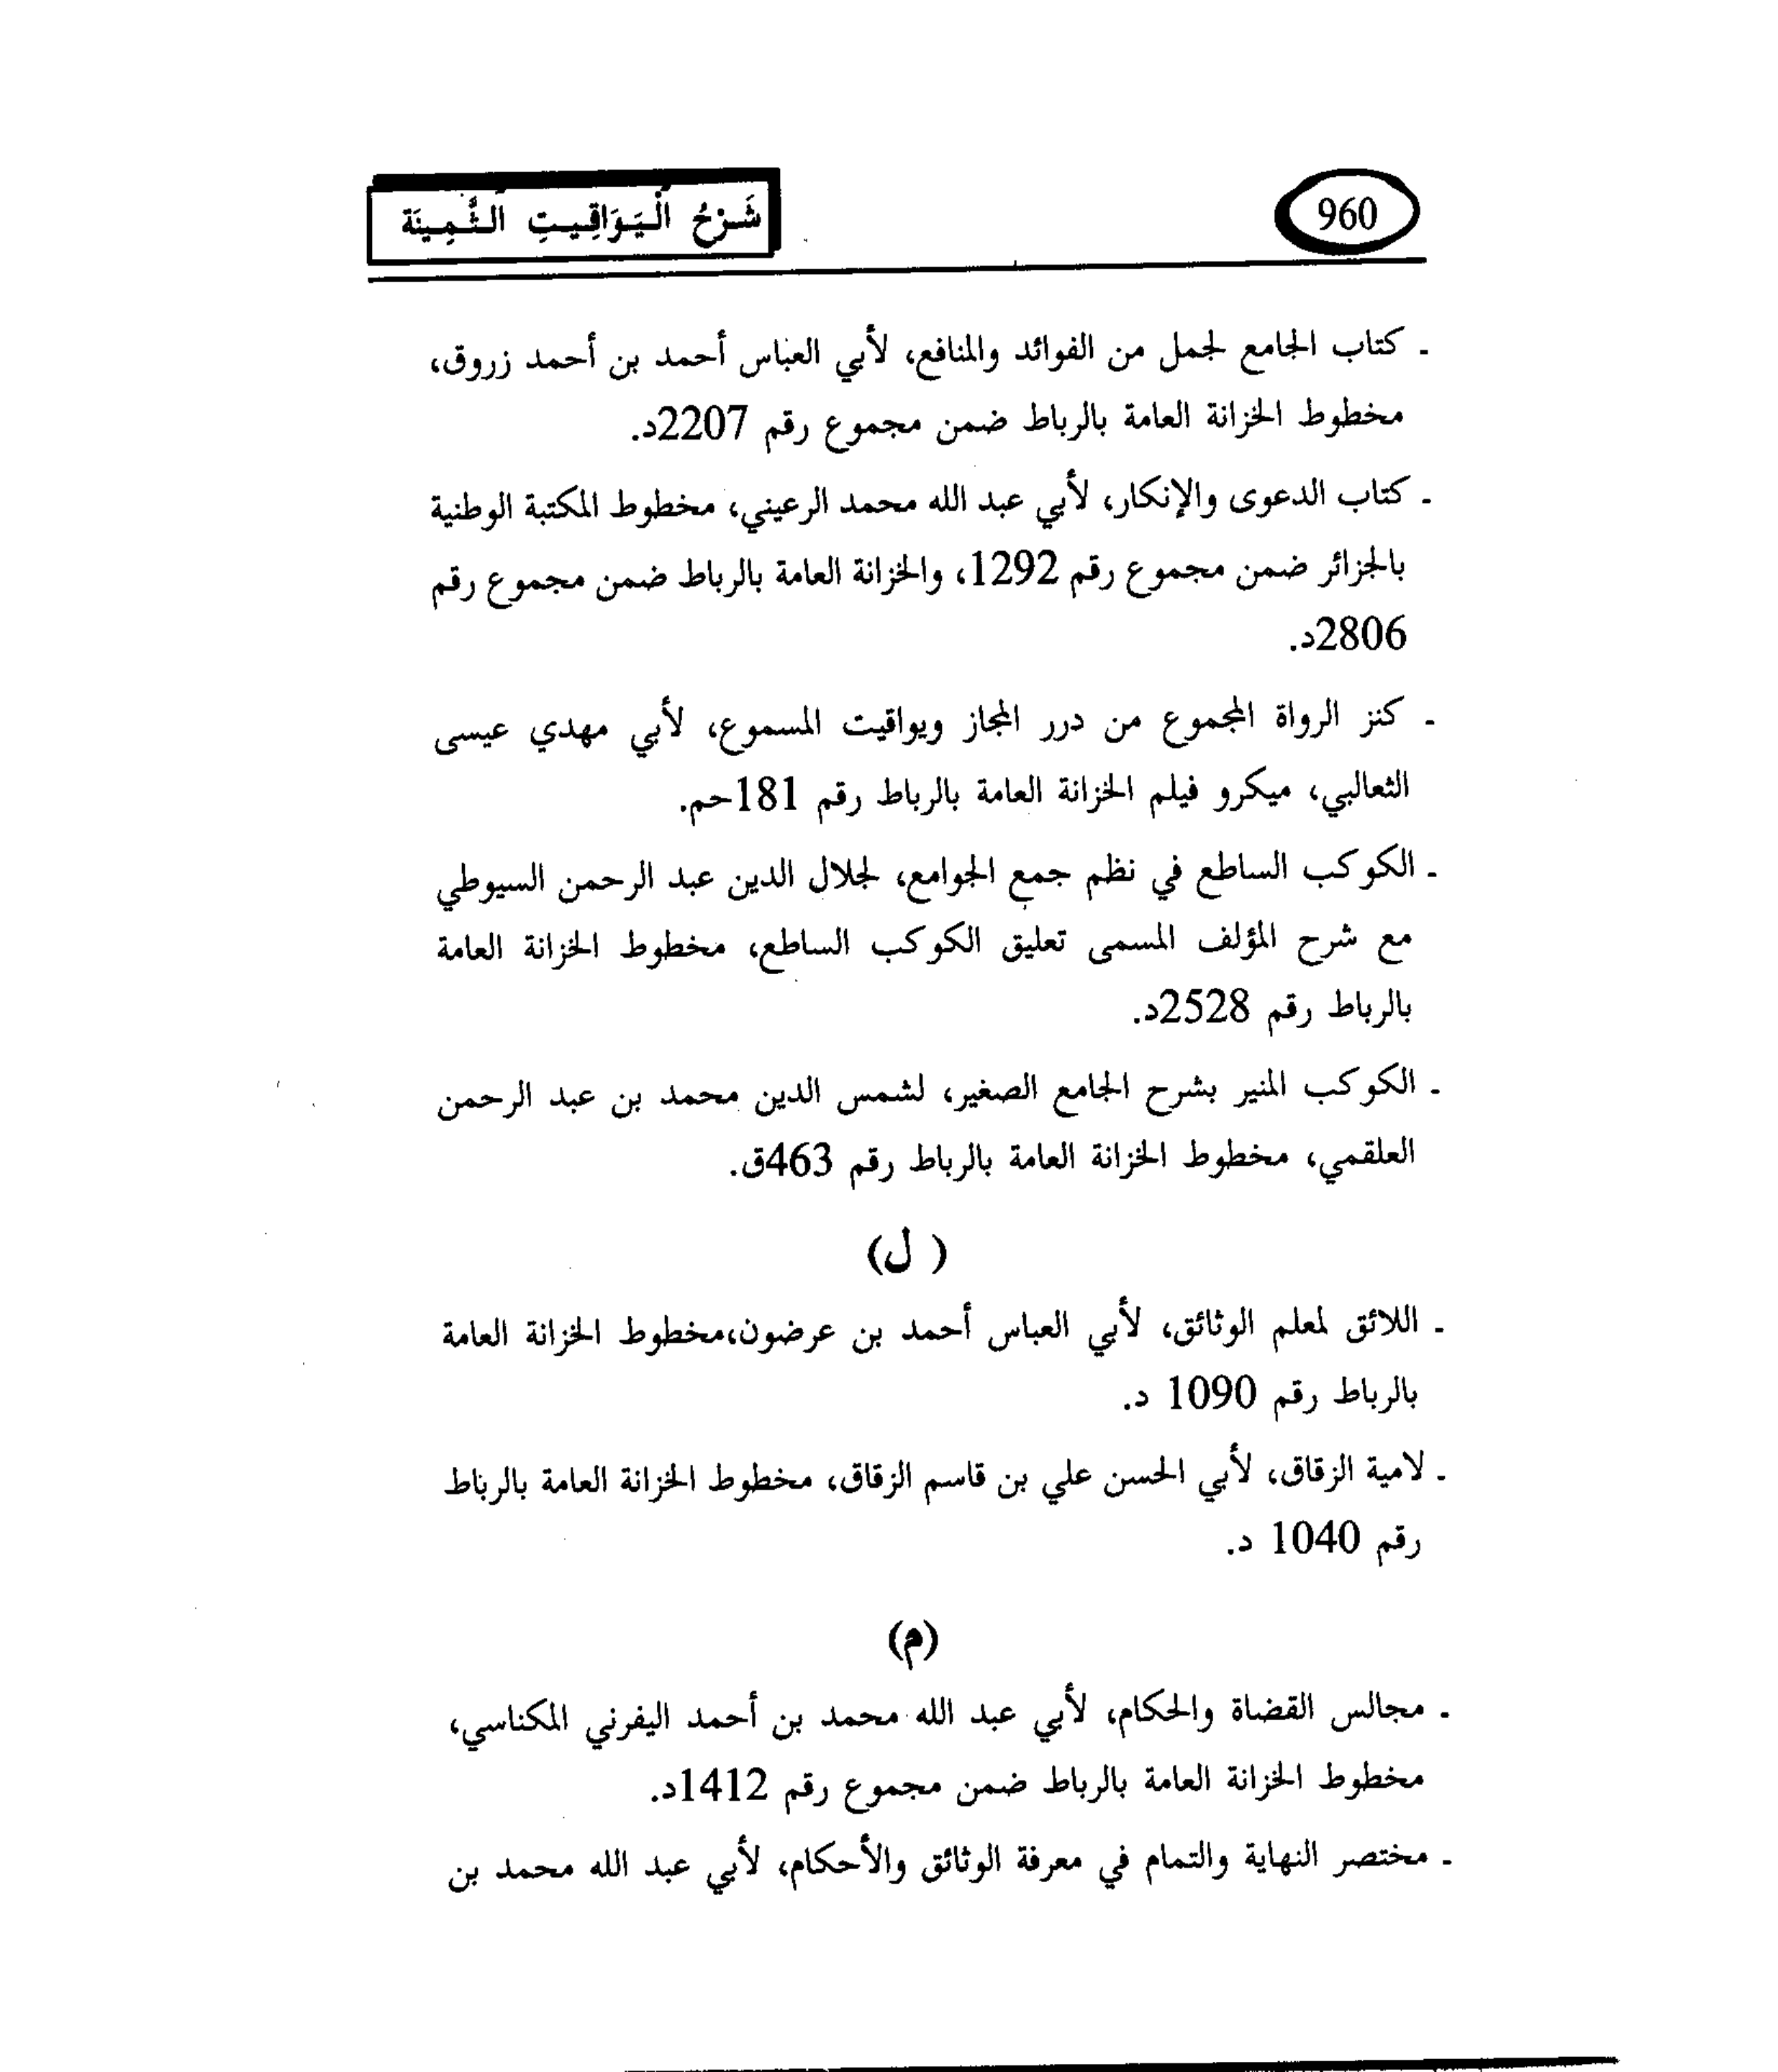 960
شَرْحُ الْيَوَاقِيتِ الثَّمِينَة
ـ كتاب الجامع لجمل من الفوائد والمنافع، لأبي العباس أحمد بن أحمد زروق،
مخطوط الخزانة العامة بالرباط ضمن مجموع رقم 2207د.
ـ كتاب الدعوى والإنكار، لأبي عبد الله محمد الرعيني، مخطوط المكتبة الوطنية
بالجزائر ضمن مجموع رقم 1292، والخزانة العامة بالرباط ضمن مجموع رقم
2806د.
ـ كنز الرواة المجموع من درر المجاز ويواقيت المسموع، لأبي مهدي عيسى
الثعالبي، ميكرو فيلم الخزانة العامة بالرباط رقم 181حم.
ـ الكوكب الساطع في نظم جمع الجوامع، لجلال الدين عبد الرحمن السيوطي
مع شرح المؤلف المسمى تعليق الكوكب الساطع، مخطوط الخزانة العامة
بالرباط رقم 2528د.
ـ الكوكب المنير بشرح الجامع الصغير، لشمس الدين محمد بن عبد الرحمن
العلقمي، مخطوط الخزانة العامة بالرباط رقم 463ق.
( ل)
ـ اللائق لمعلم الوثائق، لأبي العباس أحمد بن عرضون،مخطوط الخزانة العامة
بالرباط رقم 1090 د.
ـ لامية الزقاق، لأبي الحسن علي بن قاسم الزقاق، مخطوط الخزانة العامة بالرباط
رقم 1040 د.
(م)
ـ مجالس القضاة والحكام، لأبي عبد الله محمد بن أحمد اليفرني المكناسي،
مخطوط الخزانة العامة بالرباط ضمن مجموع رقم 1412د.
ـ مختصر النهاية والتمام في معرفة الوثائق والأحكام، لأبي عبد الله محمد بن